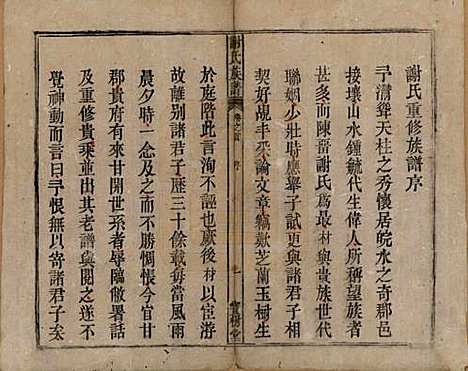 謝氏重修族譜序
予潯聳天柱之秀懷居皖水之奇郡邑
接壤山水鍾毓代生偉人所望族者
甚多而陳謝氏為最村與貴族世代
聯姻少壯時應舉子試更與諸君子相
契好覘丰采論文章竊歎芝蘭玉樹生
謝氏族譜
卷之首
序
一
寶樹堂
於庭階此言洵不誣也厥後村以宦游
故離別諸君子歷三十餘載每當風雨
晨夕時一念及之而不勝惆悵今官甘
郡貴府有甘開世系者辱臨敝署話
及重修貴乘並出其老譜與閱之遂不
覺神動而言曰予恨無以寄諸君子矣